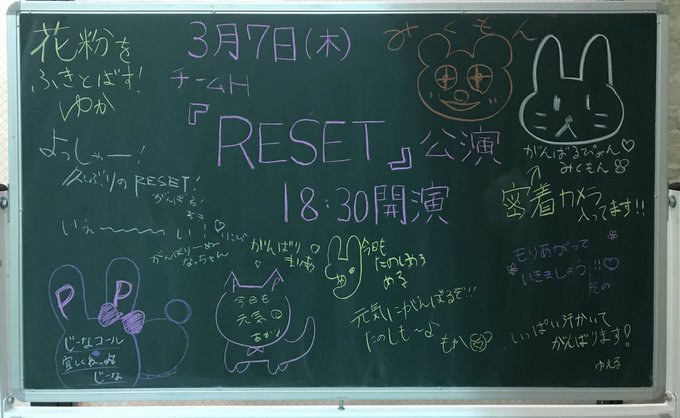 花粉を
ふきとばす!
ゆか
3月7日(木)
チームH
『RESET』公演
18:30開演
みくもん
がんばるぴょん♡
みくもん
密着カメラ
入ってます!!
よっしゃー!
久しぶりのRESET!
がんばる!
いぇ〜〜〜い!
がんばりーぬー
なっちゃん
がんばり♡
まりあ
今日も
たのしめる
める
もりあがって
いきましょう!!♡
PP
じーなコール
宜しくねっ
じーな
今日も
元気
あかり
元気にがんばるぞ!!
たのしも〜♪
もか
いっぱい汗かいて
がんばります!
ゆえる